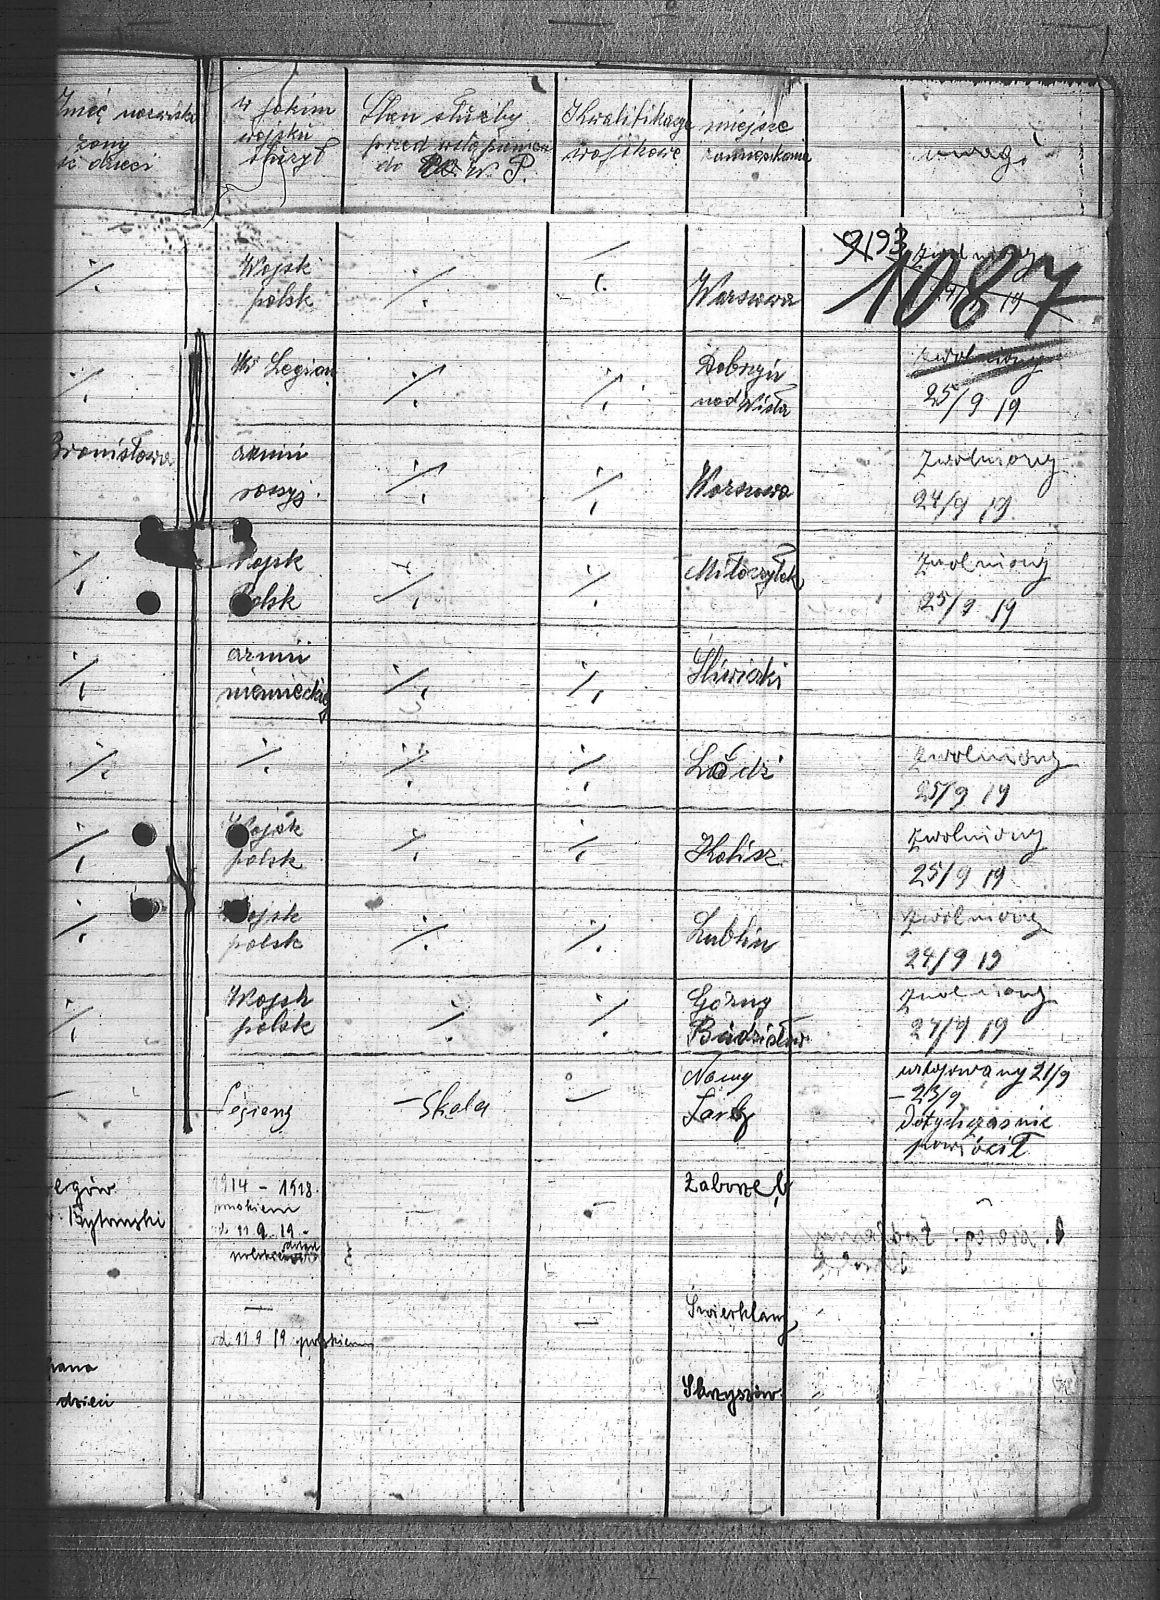 Imię nazwisko żony dzieci
w jakim wojsku służył
Stan służby przed wstąpieniem do W. P.
Kwalifikacye wojskowe
miejsce zamieszkania
uwagi
9193
1087
Wojsk polsk
Warszawa
19
W Legion
Dobrzyń nad Wisła
zwolniony
25/9 19
Bronisława
armii rossyj.
Warszawa
zwolniony
24/9 19
Wojsk Polsk
zwolniony
25/9 19
armii niemieckiej
Śliwiczki
Łodzi
zwolniony
25/9 19
Wojsk polsk
Kalisz
zwolniony
25/9 19
Wojsk polsk
Lublin
zwolniony
24/9 19
Wojsk polsk
Górny
zwolniony
24/9 19
Legiony
Skala
Nowy Targ
urlopowany 21/9
– 23/9
dotychczas nie
powrócił
Bytowski
1914 – 1918.
od 11.9.19 –
Zaborze
Świerklany
od 11 9 19 polskiem
dzieci
Skrzyszów